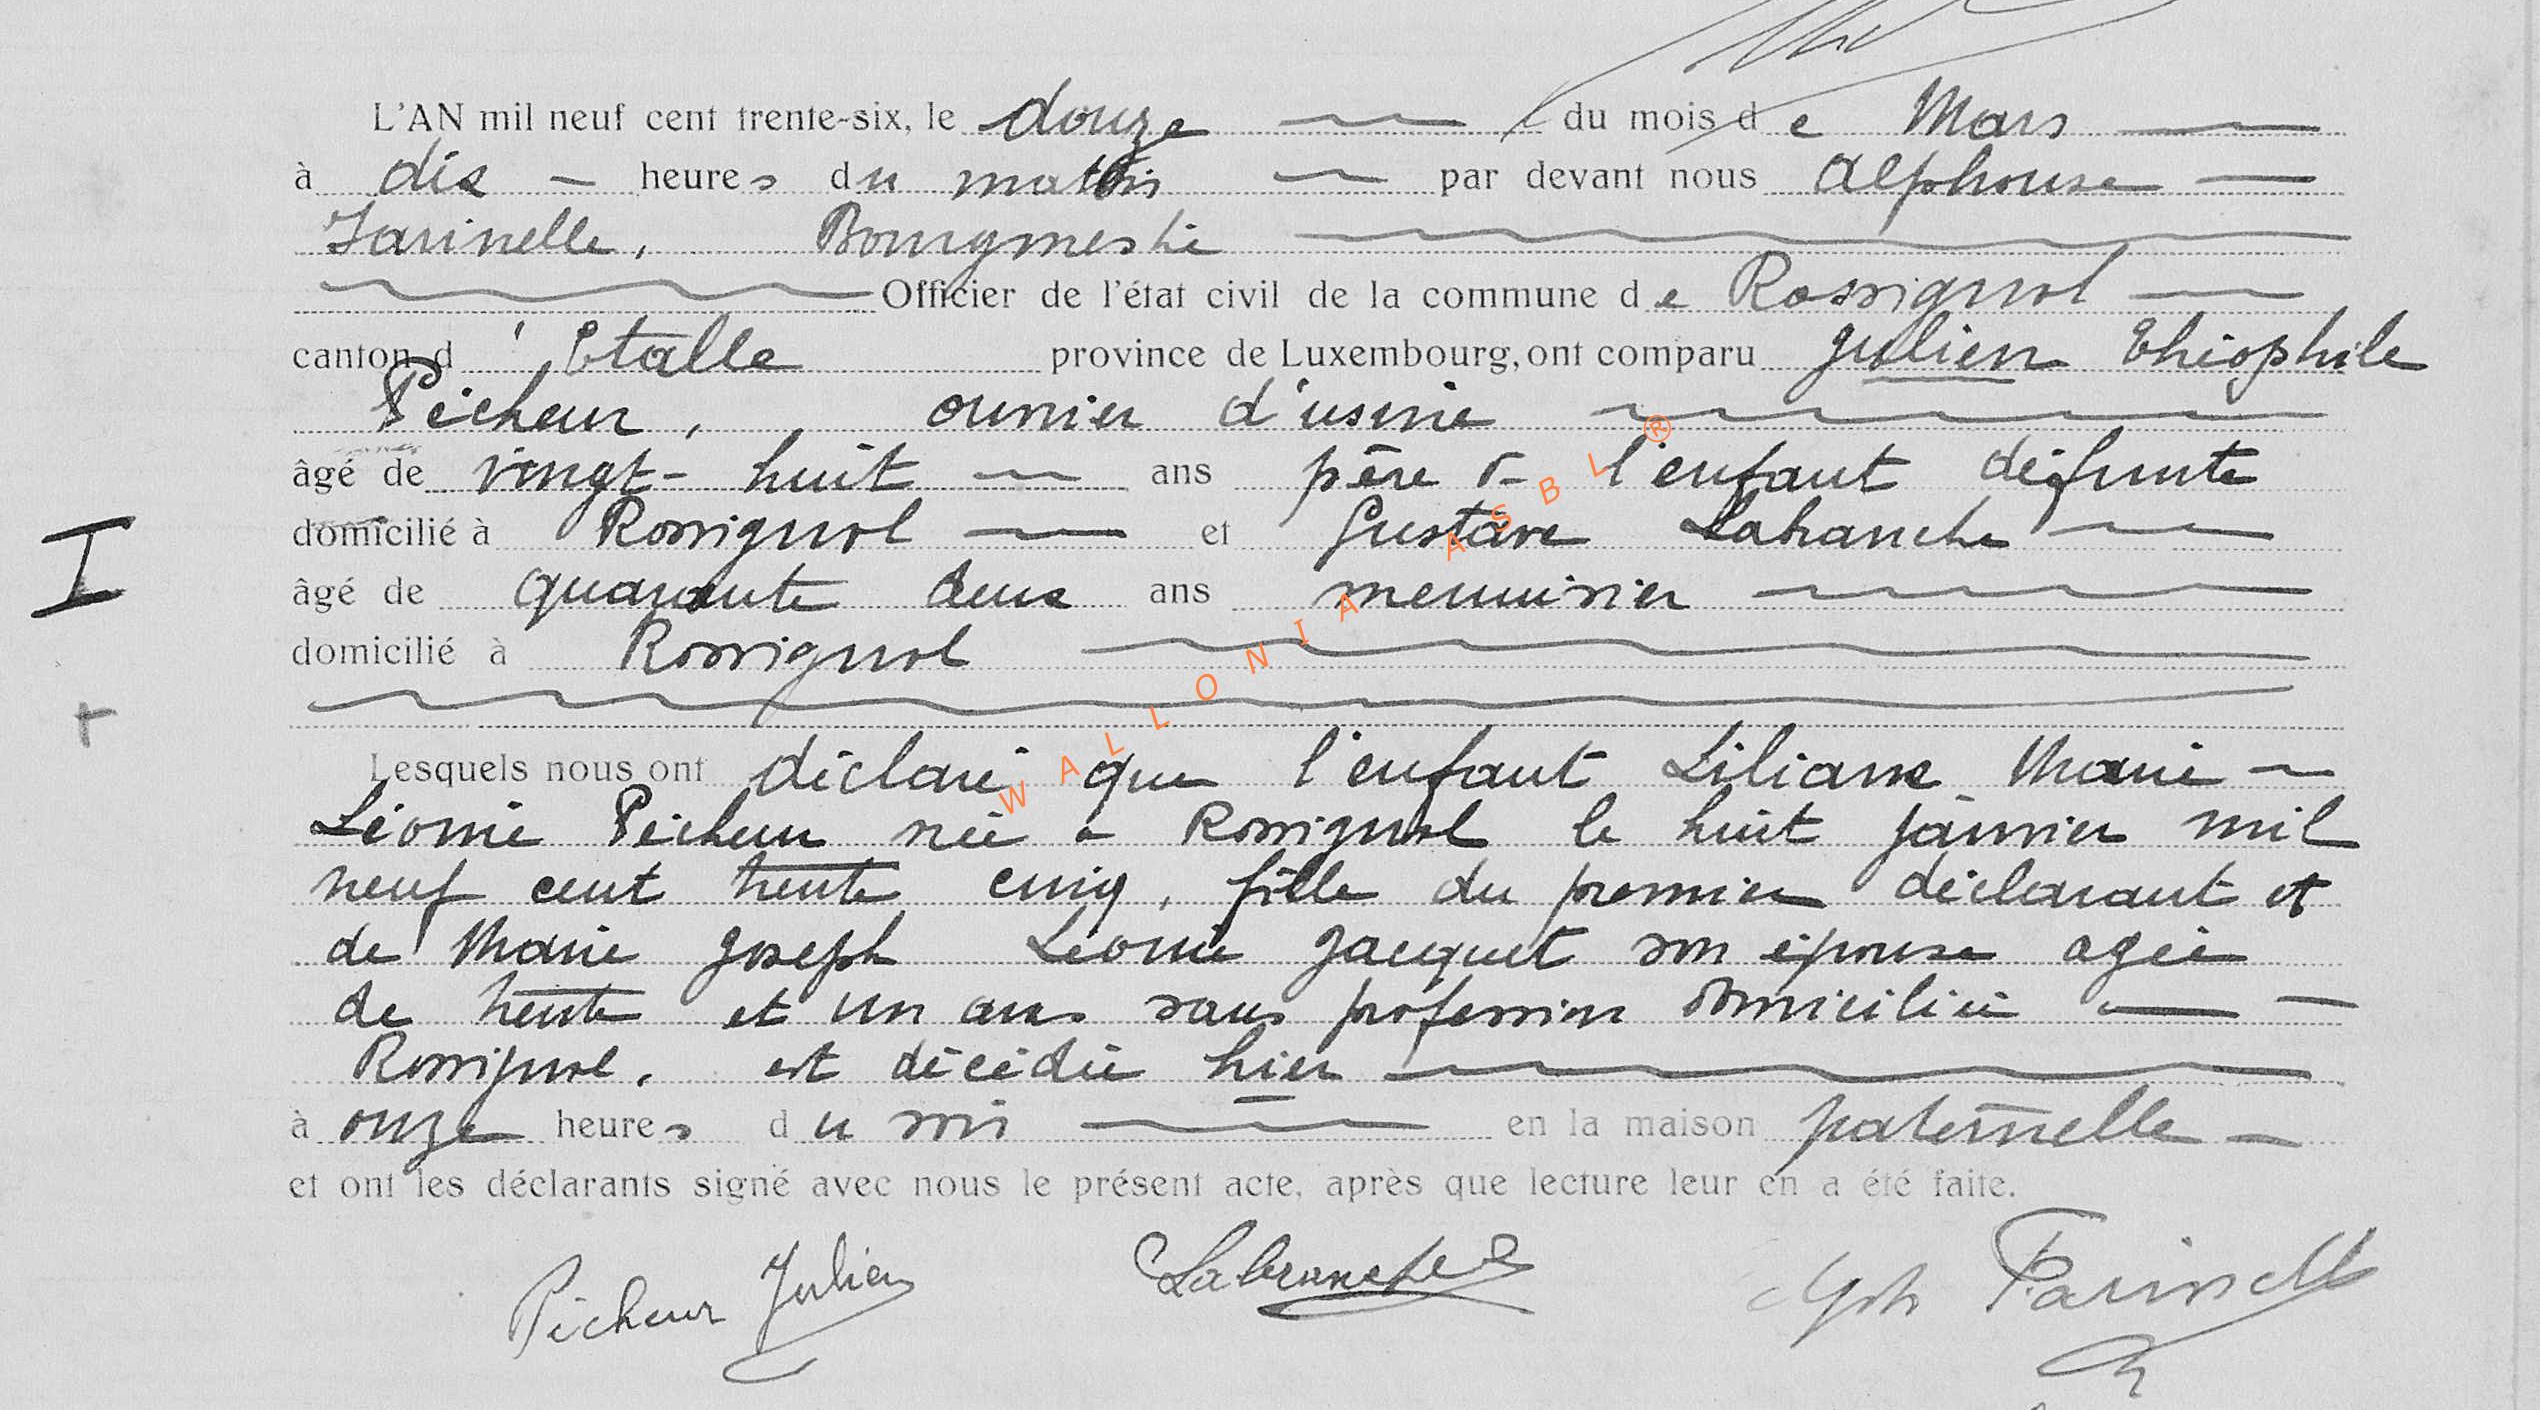 L'AN mil neuf cent trente-six, le douze du mois de Mars
à dix heures du matin par devant nous Alphonse
Farinelle, Bourgmestre
Officier de l'état civil de la commune de Rossignol
canton d'Etalle province de Luxembourg, ont comparu Julien Théophile
Pécheur, ouvrier d'usine
âgé de vingt-huit ans père de l'enfant défunte
domicilié à Rossignol et Gustave Labranche
âgé de quarante deux ans menuisier
domicilié à Rossignol
Lesquels nous ont déclaré que l'enfant Liliane Marie
Léonie Pécheur née à Rossignol le huit janvier mil
neuf cent trente cinq, fille du premier déclarant et
de Marie Joseph Léonie Jacquet son épouse agée
de trente et un ans sans profession domiciliée
Rossignol, est décédée hier
à onze heures du soir en la maison paternelle
et ont les déclarants signé avec nous le présent acte, après que lecture leur en a été faite.
Pécheur Julien Labranche G Alph Farinelle
I
+
WALLONIA ASBL ®